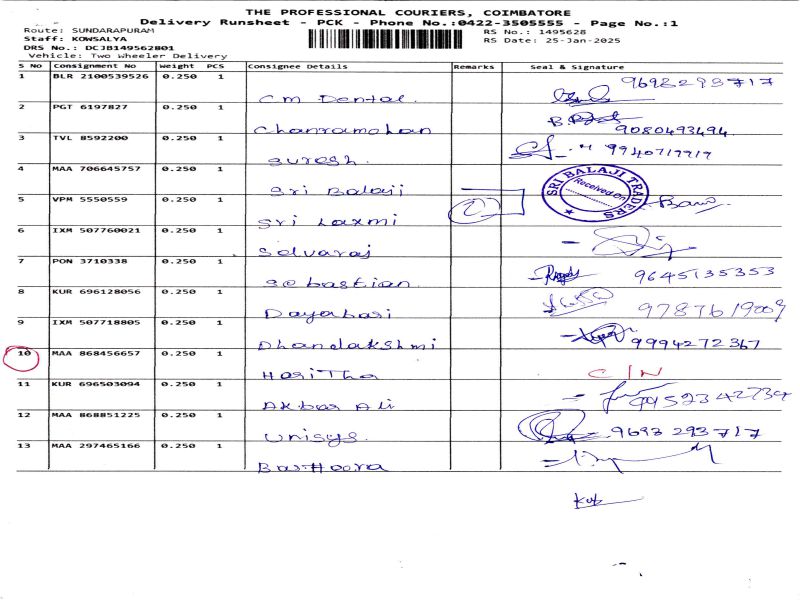 THE PROFESSIONAL COURIERS, COIMBATORE
Delivery Runsheet - PCK - Phone No.:0422-3505555 - Page No.:1
Route: SUNDARAPURAM RS No.: 1495628
Staff: KOWSALYA RS Date: 25-Jan-2025
DRS No.: DCJB149562801
Vehicle: Two Wheeler Delivery
S No Consignment No Weight PCS Consignee Details Remarks Seal & Signature
1 BLR 2100539526 0.250 1 CM Dental. 9693293717
2 PGT 6197827 0.250 1 Chanramohan 9080493494
3 TVL 8592200 0.250 1 Suresh. 9940719917
4 MAA 706645757 0.250 1 Sri Balaji SRI BALAJI TRADERS Received on
5 VPM 5550559 0.250 1 Sri Laxmi 2
6 IXM 507760021 0.250 1 Selvaraj
7 PON 3710338 0.250 1 Sebastian 9645135353
8 KUR 696128056 0.250 1 Dayabari
9 IXM 507718805 0.250 1 Dhandakshmi 9994272367
10 MAA 868456657 0.250 1 Haritha C/N
11 KUR 696503094 0.250 1 Akbar Ali
12 MAA 868851225 0.250 1 Unisys. 9693293717
13 MAA 297465166 0.250 1